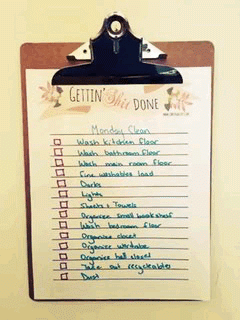 GETTIN' Shit DONE
Monday Clean
Wash kitchen floor
Wash bathroom floor
Wash main room floor
Fine washables load
Darks
Lights
Sheets & Towels
Organize small bookshelf
Wash bedroom floor
Organize closet
Organize wardrobe
Organize hall closet
Take out recycleables
Dust